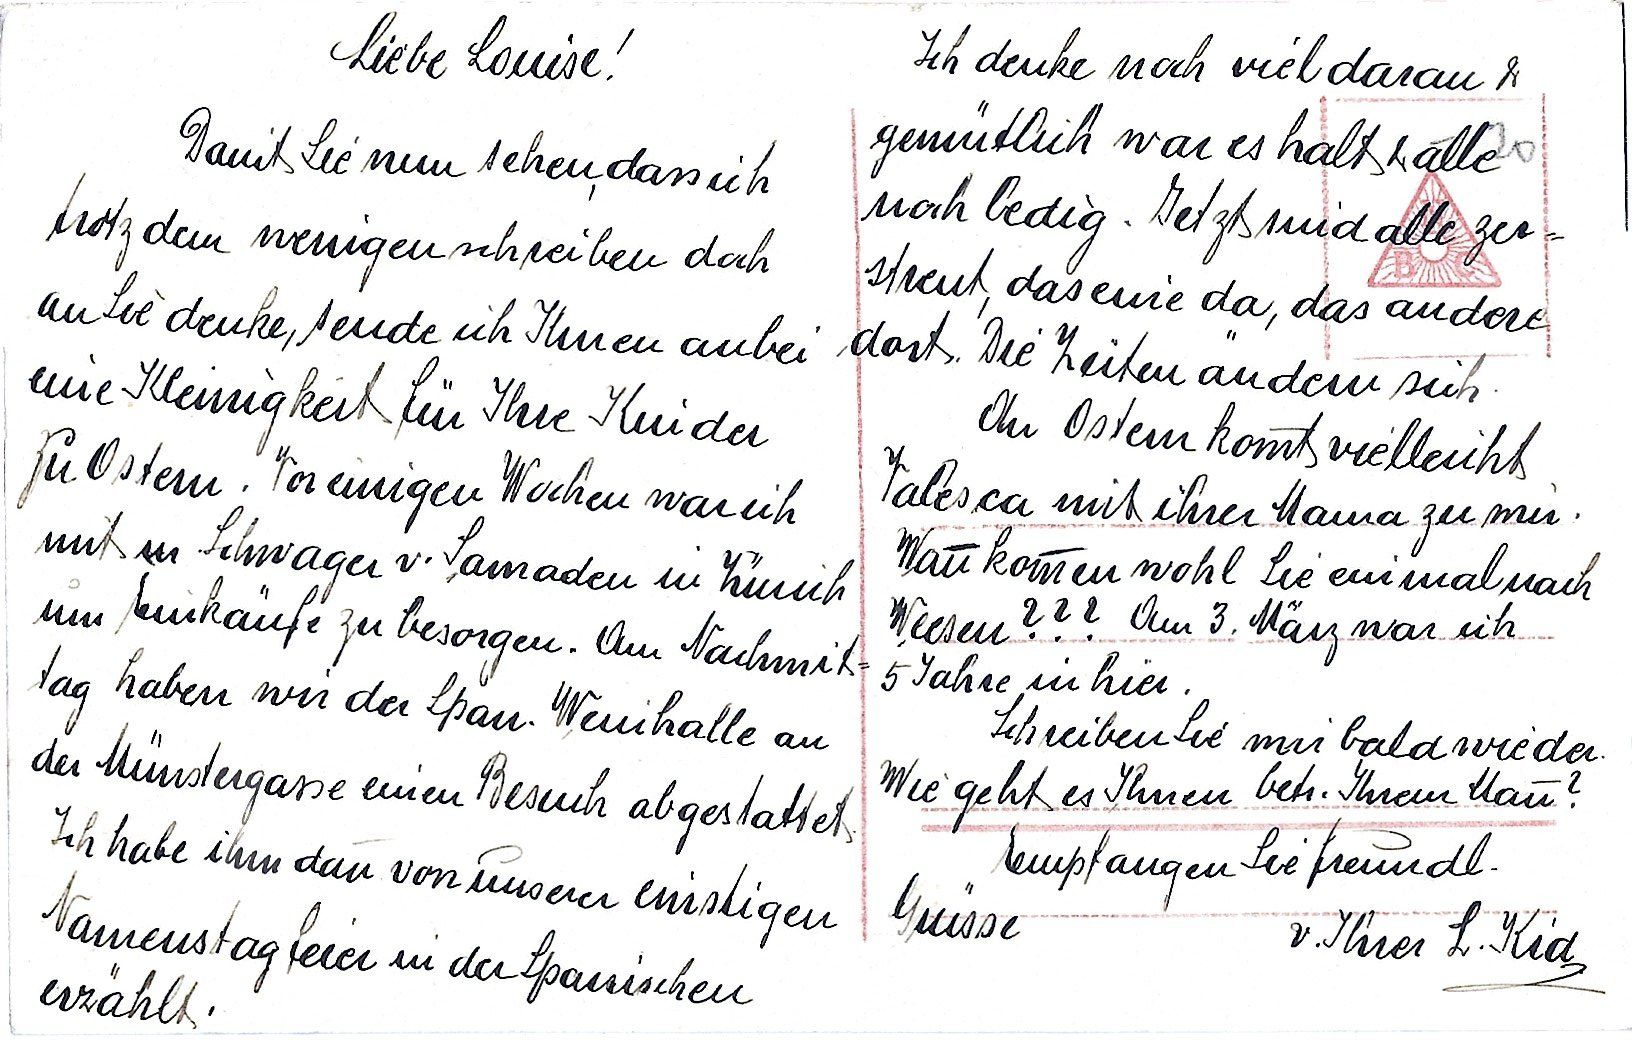 Liebe Louise!
Damit Sie nun sehen, dass ich
trotz dem wenigen schreiben doch
an Sie denke, sende ich Ihnen anbei
eine Kleinigkeit für Ihre Kinder
zu Ostern. Vor einigen Wochen war ich
mit m Schwager v. Samaden in Zürich
um Einkäufe zu besorgen. Am Nachmit=
tag haben wir der Span. Weinhalle an
der Münstergasse einen Besuch abgestattet.
Ich habe ihm dan̄ von unserer einstigen
Namenstagfeier in der Spanischen
erzählt.
Ich denke noch viel daran &
gemütlich war es halt & alle
noch ledig. Jetzt sind alle zer=
streut, das eine da, das andere
dort. Die Zeiten ändern sich.
An Ostern kom̄t vielleicht
Valesca mit ihrer Mama zu mir.
Wan̄ kom̄en wohl Sie einmal nach
Weesen??? Am 3. März war ich
5 Jahre in hier.
Schreiben Sie mir bald wieder.
Wie geht es Ihnen betr. Ihrem Man̄?
Empfangen Sie freundl.
Grüsse
v. Ihrer L. Kid
20
B C